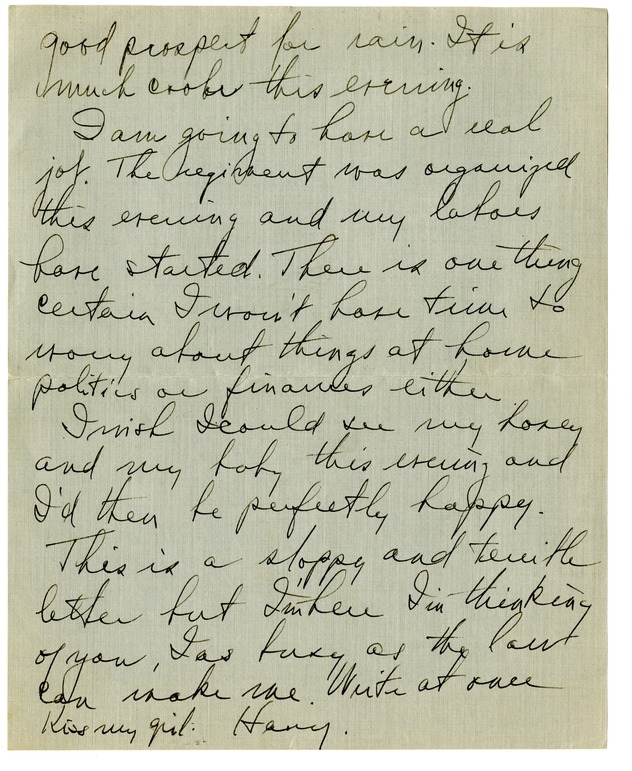 good prospect for rain. It is
much cooler this evening.
I am going to have a real
job. The regiment was organized
this evening and my labors
have started. There is one thing
certain I won't have time to
worry about things at home
politics or finances either.
I wish I could see my honey
and my baby this evening and
I'd then be perfectly happy.
This is a sloppy and terrible
letter but I'm here I'm thinking
of you, I as busy as the law
can make me. Write at once
Kiss my girl. Harry.